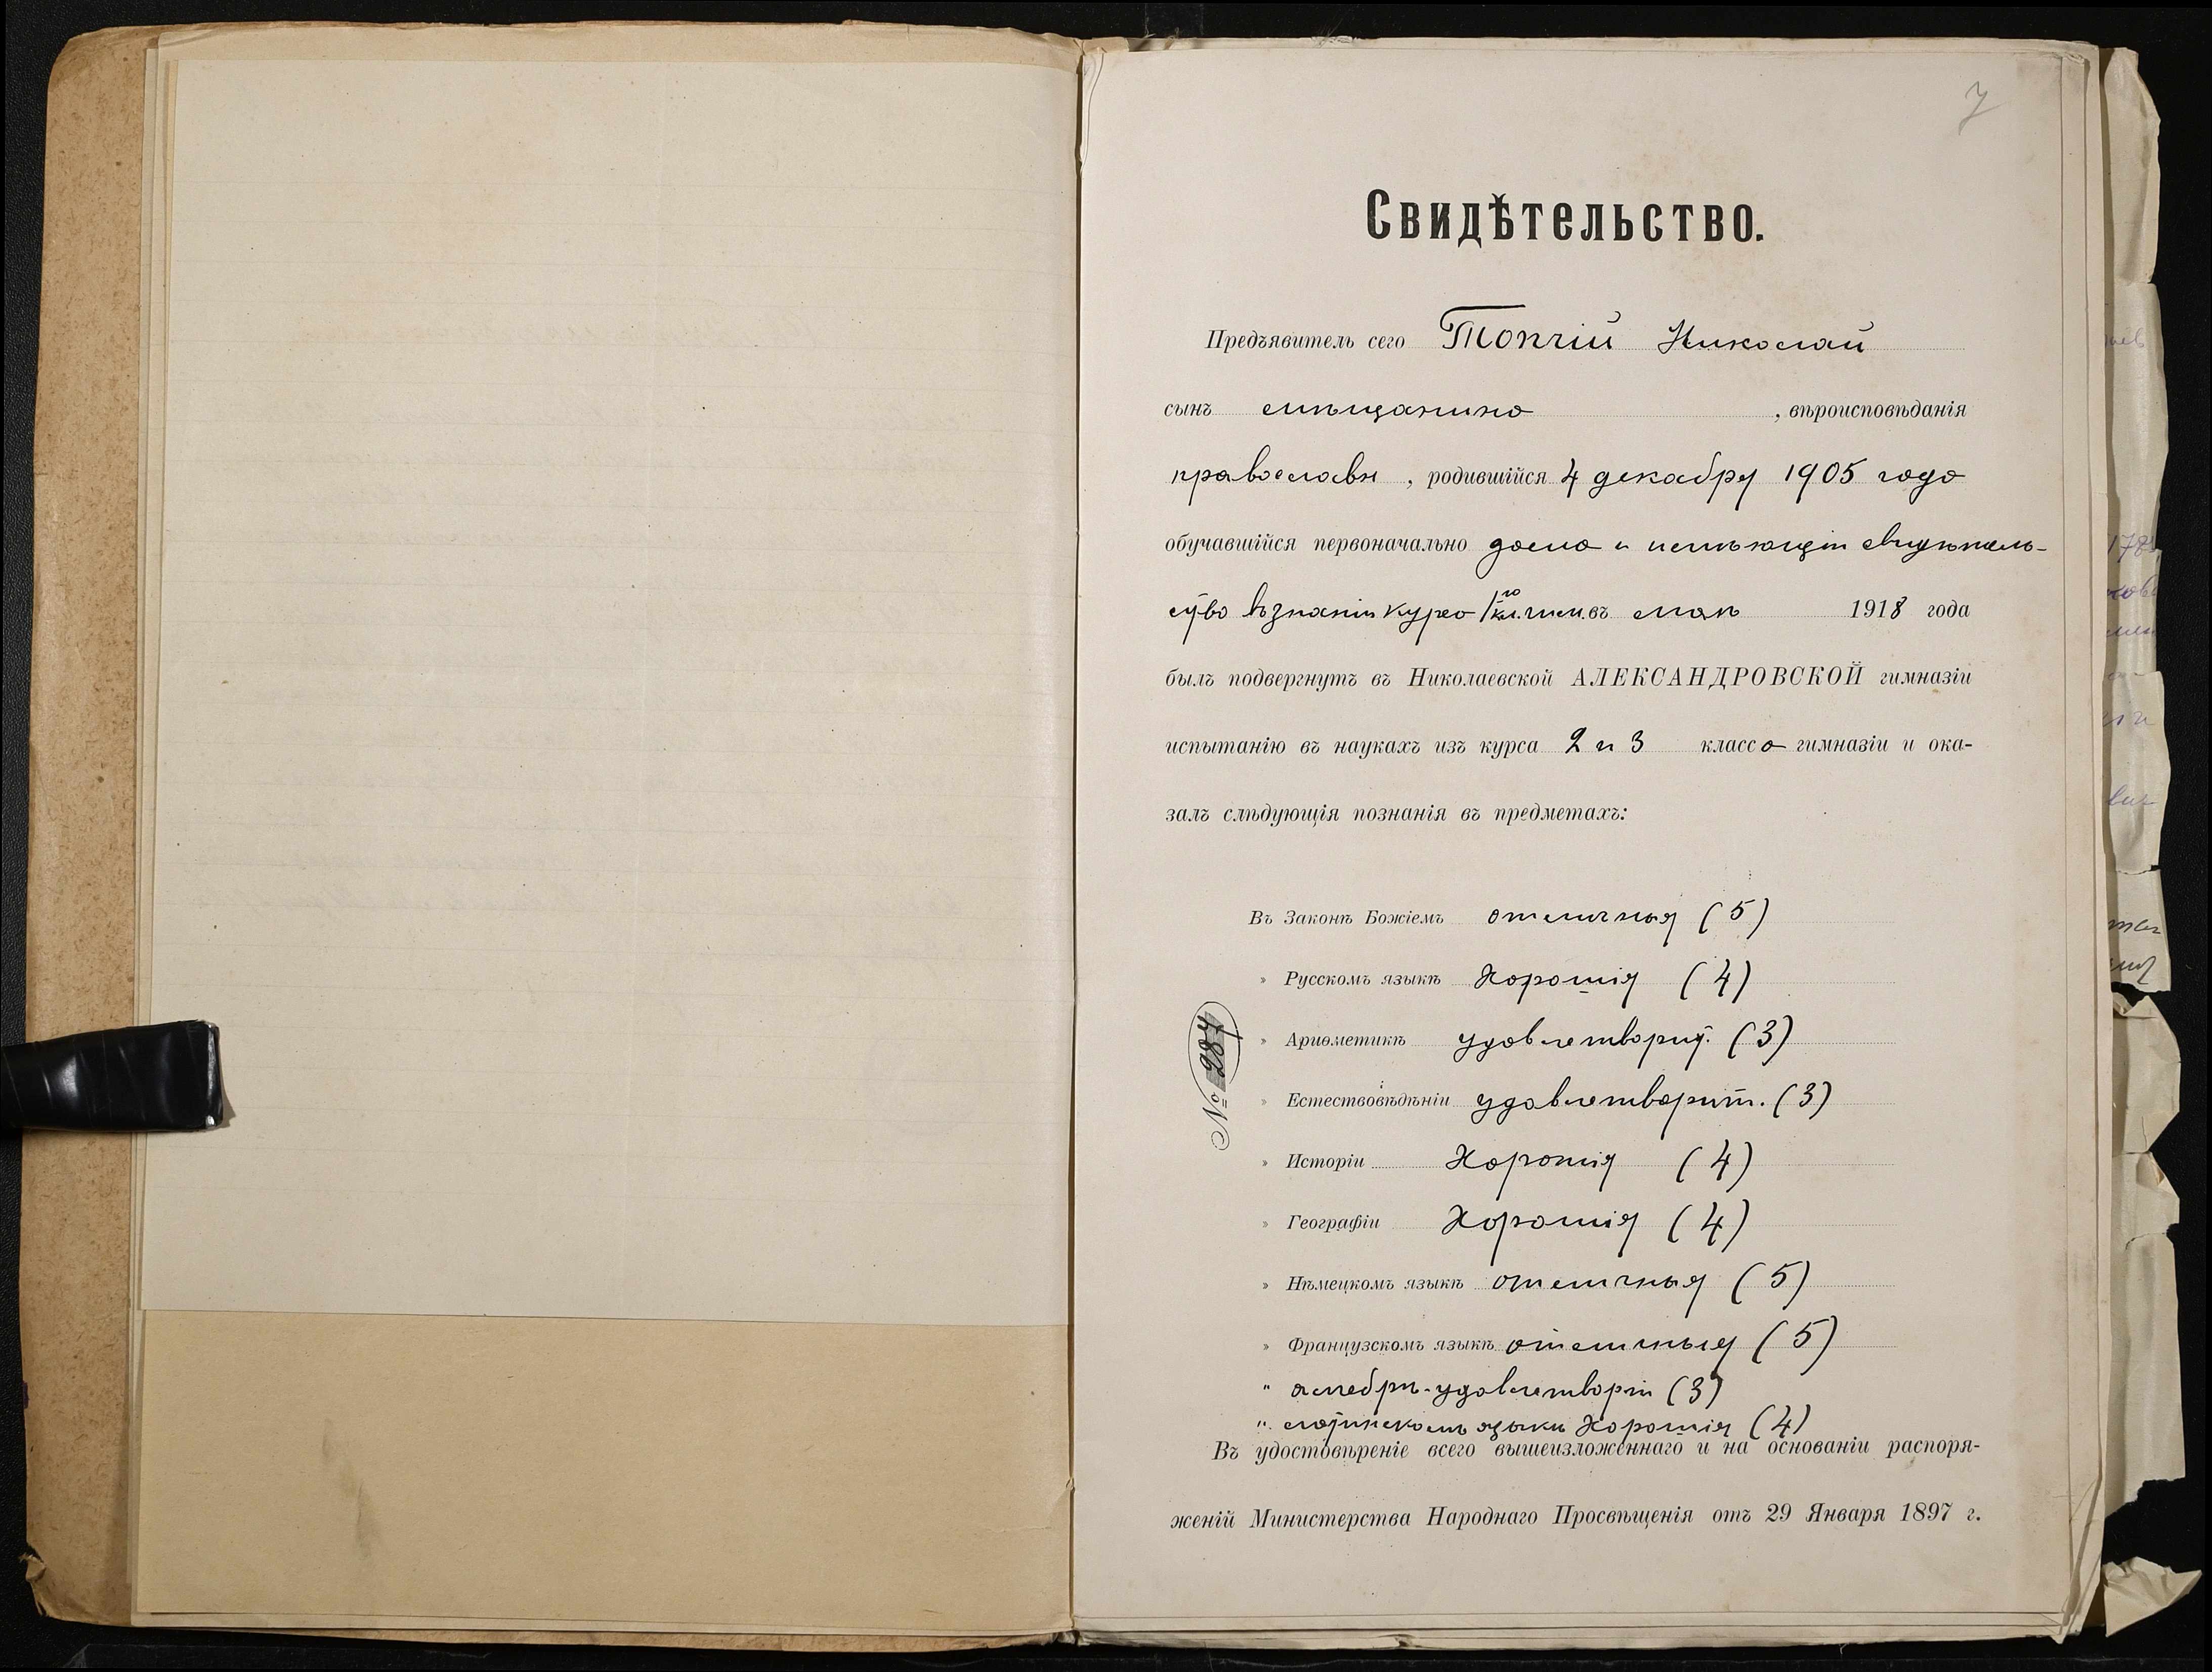 7
Свидѣтельство.
Предъявитель сего Топчій Николай
сынъ мѣщанина , вѣроисповѣданія
православн , родившійся 4 декабря 1905 года
обучавшійся первоначально дома и имѣющій свидѣтель-
ство въ знаніи курса 1го кл. гим. въ маѣ 1918 года
былъ подвергнутъ въ Николаевской АЛЕКСАНДРОВСКОЙ гимназіи
испытанію въ наукахъ изъ курса 2 и 3 класса гимназіи и ока-
залъ слѣдующія познанія въ предметахъ:
Въ Законѣ Божіемъ отличныя (5)
» Русскомъ языкѣ Хорошія (4)
» Ариѳметикѣ удовлетворит. (3)
» Естествовѣдѣніи удовлетворит. (3)
» Исторіи Хорошія (4)
» Географіи Хорошія (4)
» Нѣмецкомъ языкѣ отличныя (5)
» Французскомъ языкѣ отличныя (5)
" алгебрѣ - удовлетворит (3)
" латинскомъ языкѣ Хорошія (4)
№ 284
Въ удостовѣреніе всего вышеизложеннаго и на основаніи распоря-
женій Министерства Народнаго Просвѣщенія отъ 29 Января 1897 г.